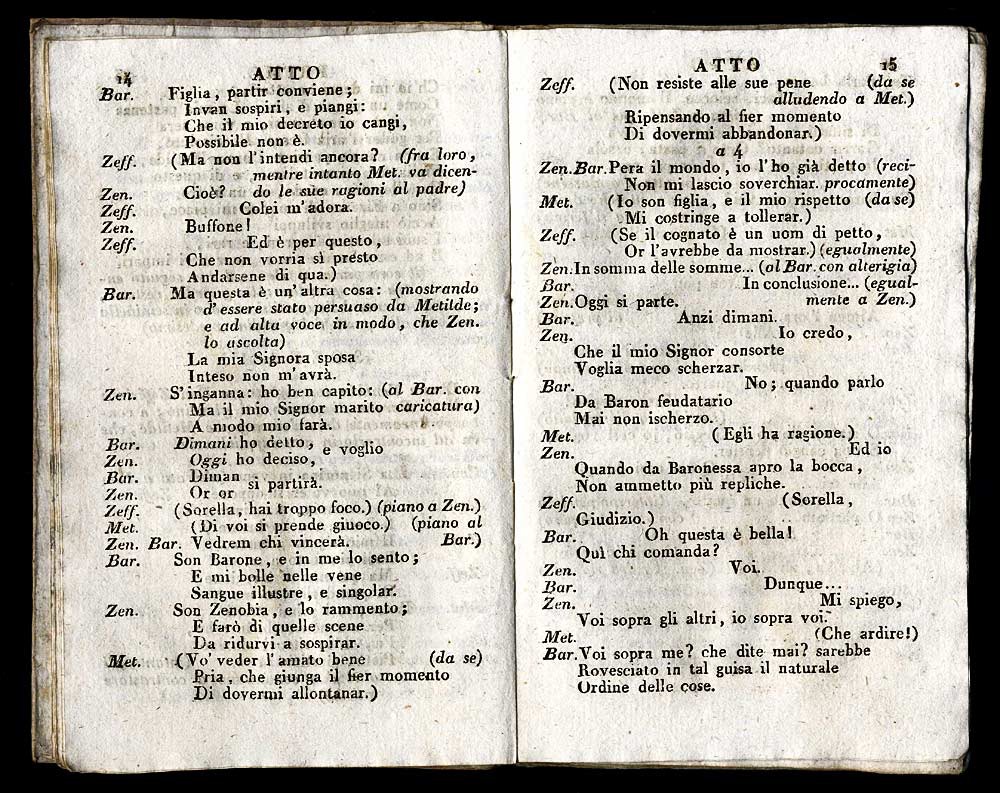 14 ATTO
Bar. Figlia, partir conviene;
Invan sospiri, e piangi:
Che il mio decreto io cangi,
Possibile non è.
Zeff. (Ma non l'intendi ancora? (fra loro,
mentre intanto Met. va dicen-
Zen. Cioè? do le sue ragioni al padre)
Zeff. Colei m'adora.
Zen. Buffone!
Zeff. Ed è per questo,
Che non vorria sì presto
Andarsene di qua.)
Bar. Ma questa è un'altra cosa: (mostrando
d'essere stato persuaso da Metilde;
e ad alta voce in modo, che Zen.
lo ascolta)
La mia Signora sposa
Inteso non m'avrà.
Zen. S'inganna: ho ben capito: (al Bar. con
Ma il mio Signor marito caricatura)
A modo mio farà.
Bar. Dimani ho detto, e voglio
Zen. Oggi ho deciso,
Bar. Diman si partirà.
Zen. Or or
Zeff. (Sorella, hai troppo foco.) (piano a Zen.)
Met. (Di voi si prende giuoco.) (piano al
Zen. Bar. Vedrem chi vincerà. Bar.)
Bar. Son Barone, e in me lo sento;
E mi bolle nelle vene
Sangue illustre, e singolar.
Zen. Son Zenobia, e lo rammento;
E farò di quelle scene
Da ridurvi a sospirar.
Met. (Vo' veder l'amato bene (da se)
Pria, che giunga il fier momento
Di dovermi allontanar.)
ATTO 15
Zeff. (Non resiste alle sue pene (da se
alludendo a Met.)
Ripensando al fier momento
Di dovermi abbandonar.)
a 4
Zen. Bar. Pera il mondo, io l'ho già detto (reci-
Non mi lascio soverchiar. procamente)
Met. (Io son figlia, e il mio rispetto (da se)
Mi costringe a tollerar.)
Zeff. (Se il cognato è un uom di petto,
Or l'avrebbe da mostrar.) (egualmente)
Zen. In somma delle somme... (al Bar. con alterigia)
Bar. In conclusione... (egual-
Zen. Oggi si parte. mente a Zen.)
Bar. Anzi dimani.
Zen. Io credo,
Che il mio Signor consorte
Voglia meco scherzar.
Bar. No; quando parlo
Da Baron feudatario
Mai non ischerzo.
Met. (Egli ha ragione.)
Zen. Ed io
Quando da Baronessa apro la bocca,
Non ammetto più repliche.
Zeff. (Sorella,
Giudizio.)
Bar. Oh questa è bella!
Quì chi comanda?
Zen. Voi.
Bar. Dunque...
Zen. Mi spiego,
Voi sopra gli altri, io sopra voi.
Met. (Che ardire!)
Bar. Voi sopra me? che dite mai? sarebbe
Rovesciato in tal guisa il naturale
Ordine delle cose.